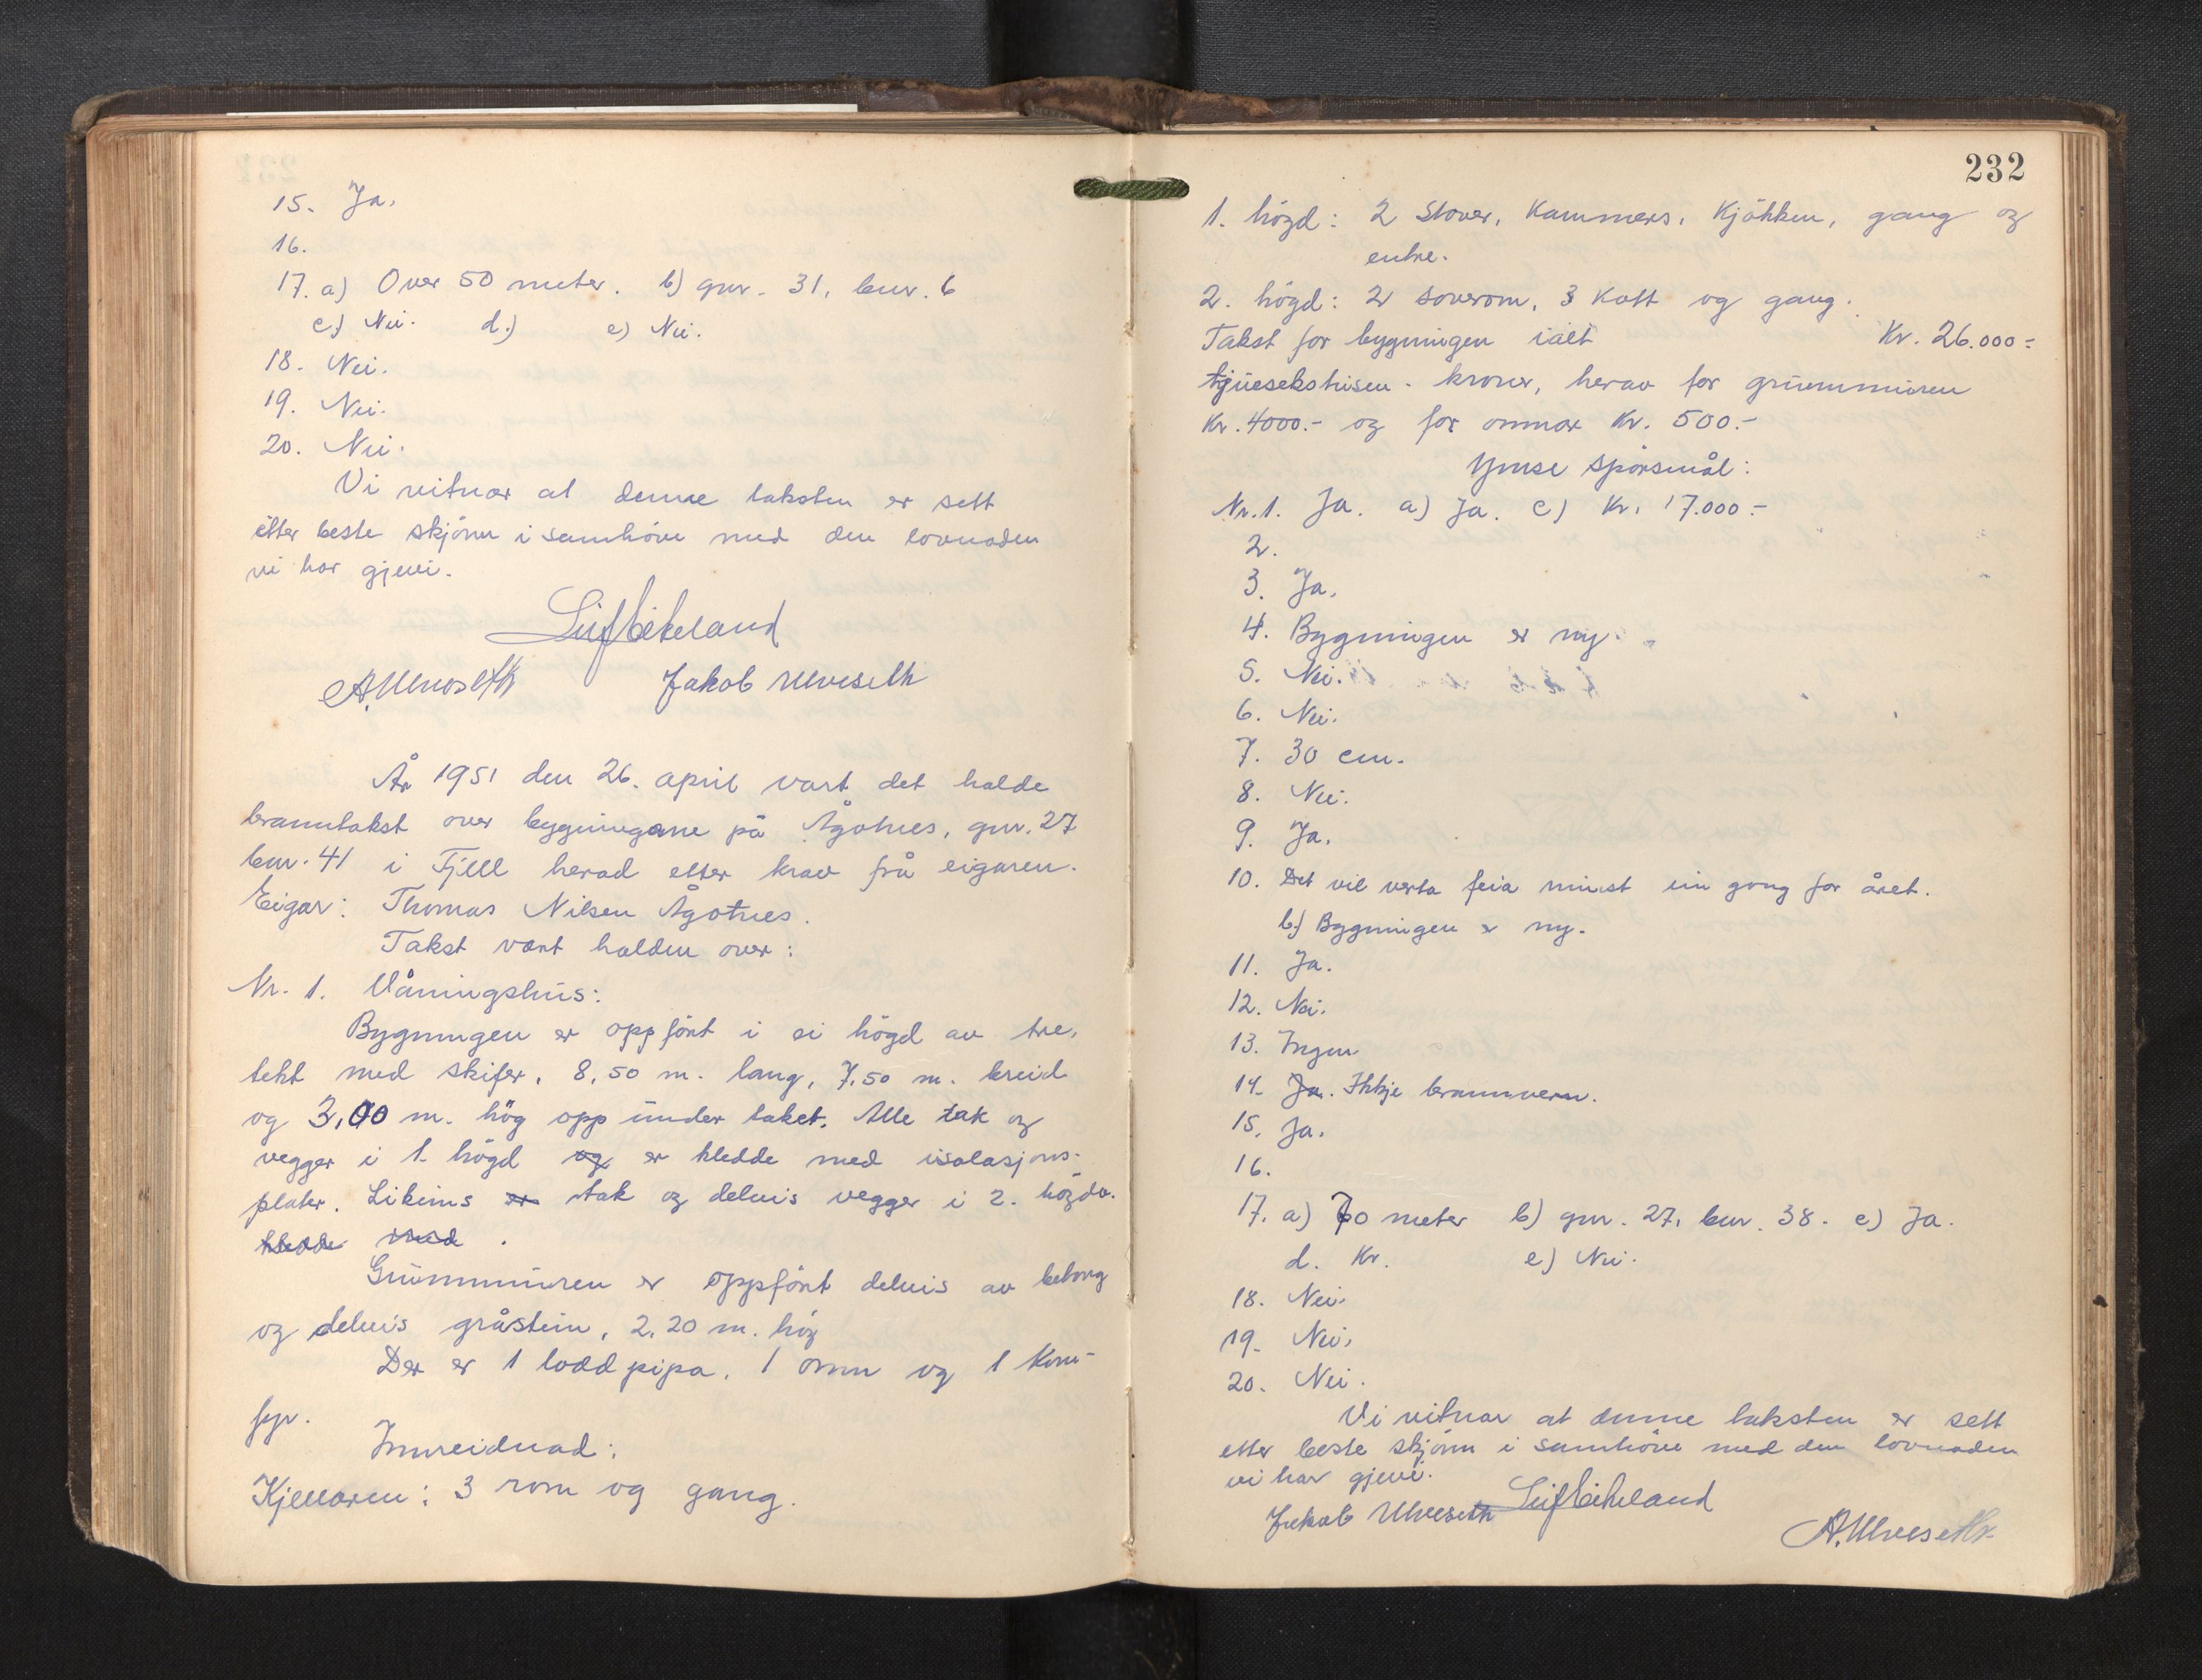 15. Ja.
16.
17. a) Over 50 meter. b) gnr. 31, bnr. 6
c) Nei. d.) e) Nei.
18. Nei.
19. Nei.
20. Nei.
Vi vitnar at denne taksten er sett
etter beste skjönn i samhöve med den lovnaden
vi har gjevi.
Leif Eikeland
A. Ulveseth Jakob Ulveseth
År 1951 den 26. april vart det halde
branntakst over bygningane på Ågotnes, gnr. 27
bnr. 41 i Fjell herad etter krav frå eigaren.
Eigar: Thomas Nilsen Ågotnes.
Takst vart halden over:
Nr. 1. Våningshus:
Bygningen er oppfört i ei högd av tre,
tekt med skifer, 8,50 m. lang, 7,50 m. breid
og 3,00 m. hög opp under taket. Alle tak og
vegger i 1. högd og er kledde med isolasjons-
plater. Likeins er tak og delvis vegger i 2. högda.
kledde med .
Grunnmuren er oppfört delvis av betong
og delvis gråstein, 2,20 m. hög
Der er 1 lodd pipa, 1 omn og 1 kom-
fyr.
Innreidnad:
Kjellaren: 3 rom og gang.
232
1. högd: 2 Stover, Kammers, Kjökken, gang og
entre.
2. högd: 2 soverom, 3 Kott og gang.
Takst for bygningen ialt Kr. 26.000=
tjuesekstusen - kroner, herav for grunnmuren
Kr. 4000.- og for omnar Kr. 500.-
Ymse spörsmål:
Nr. 1. Ja. a) Ja. c) Kr. 17.000.-
2.
3. Ja.
4. Bygningen er ny.
5. Nei.
6. Nei.
7. 30 cm.
8. Nei.
9. Ja.
10. Det vil verta feia minst ein gong for året.
b) Bygningen er ny.
11. Ja.
12. Nei.
13. Ingen
14. Ja. Ikkje brannvern.
15. Ja.
16.
17. a) 70 meter b) gnr. 27, bnr. 38. c) Ja.
d. Kr. e) Nei.
18. Nei.
19. Nei.
20. Nei.
Vi vitnar at denne taksten er sett
etter beste skjönn i samhöve med den lovnaden
vi har gjevi.
Jakob Ulveseth Leif Eikeland
A. Ulveseth